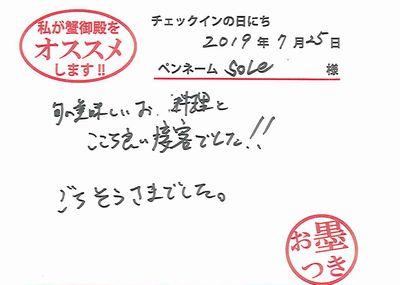 私が蟹御殿を
オススメ
します!!
チェックインの日にち
2019年7月25日
ペンネーム sole 様
旬の美味しいお料理と
ここち良い接客でした!!
ごちそうさまでした。
お墨
つき